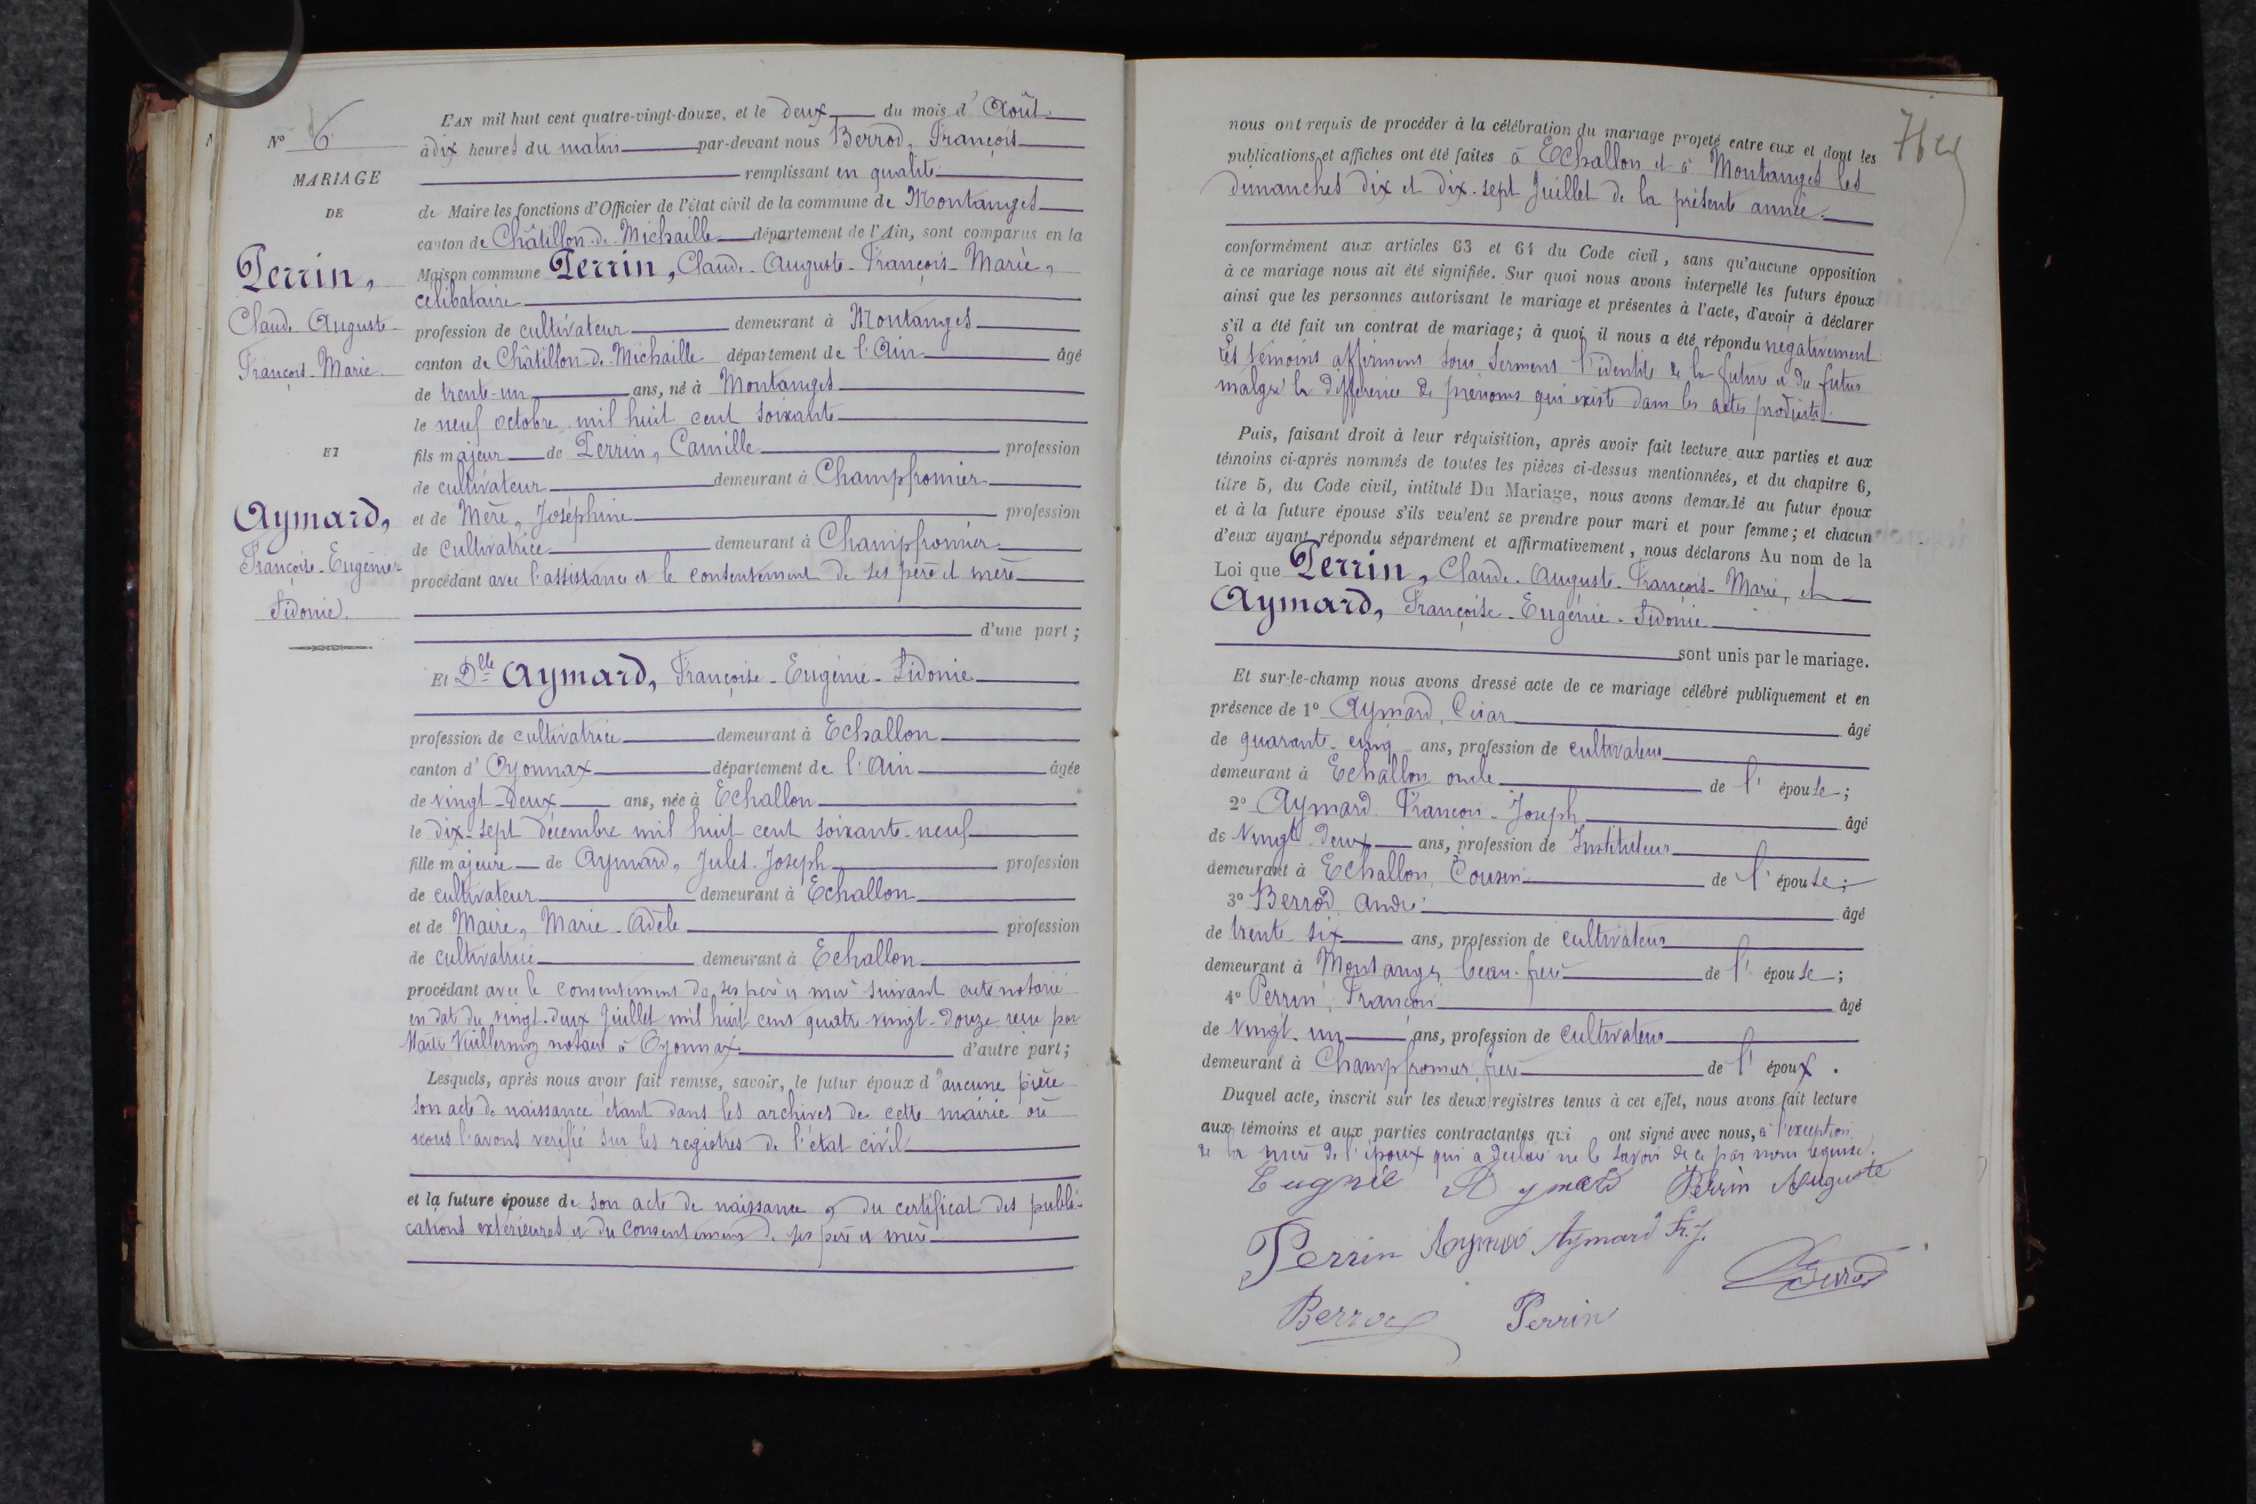 N° 6
MARIAGE
DE
Perrin,
Claude Auguste
François Marie
ET
Aymard,
Françoise-Eugénie-
Sidonie.
L'AN mil huit cent quatre-vingt-douze, et le deux du mois d'Août
à dix heures du matin par-devant nous Berrod, François
remplissant en qualité
de Maire les fonctions d'Officier de l'état civil de la commune de Montanges
canton de Châtillon-de-Michaille département de l'Ain, sont comparus en la
Maison commune Perrin, Claude-Auguste-François-Marie,
célibataire
profession de cultivateur demeurant à Montanges
canton de Châtillon-de-Michaille département de l'Ain âgé
de trente-un ans, né à Montanges
le neuf octobre mil huit cent soixante
fils majeur de Perrin, Camille profession
de cultivateur demeurant à Champfromier
et de Mère, Joséphine profession
de cultivatrice demeurant à Champfromier
procédant avec l'assistance et le consentement de ses père et mère
d'une part;
Et Dlle Aymard, Françoise-Eugénie-Sidonie
profession de cultivatrice demeurant à Echallon
canton d'Oyonnax département de l'Ain âgée
de vingt-deux ans, née à Echallon
le dix-sept décembre mil huit cent soixante-neuf
fille majeure de Aymard, Jules-Joseph profession
de cultivateur demeurant à Echallon
et de Maire, Marie-Adèle profession
de cultivatrice demeurant à Echallon
procédant avec le consentement de ses père et mère suivant acte notarié
en date du vingt-deux Juillet mil huit cent quatre-vingt-douze reçu par
Maître Vuillermoz notaire à Oyonnax d'autre part;
Lesquels, après nous avoir fait remise, savoir, le futur époux d'aucune pièce
son acte de naissance étant dans les archives de cette mairie où
nous l'avons vérifié sur les registres de l'état civil
et la future épouse de son acte de naissance, du certificat des publi-
cations extérieures et du consentement de ses père et mère
nous ont requis de procéder à la célébration du mariage projeté entre eux et dont les
publications et affiches ont été faites à Echallon et à Montanges les
dimanches dix et dix-sept Juillet de la présente année.
conformément aux articles 63 et 64 du Code civil, sans qu'aucune opposition
à ce mariage nous ait été signifiée. Sur quoi nous avons interpellé les futurs époux
ainsi que les personnes autorisant le mariage et présentes à l'acte, d'avoir à déclarer
s'il a été fait un contrat de mariage; à quoi il nous a été répondu négativement
Les témoins affirment sous serment l'identité de la future et du futur
malgré la différence de prénoms qui existe dans les actes produits.
Puis, faisant droit à leur réquisition, après avoir fait lecture aux parties et aux
témoins ci-après nommés de toutes les pièces ci-dessus mentionnées, et du chapitre 6,
titre 5, du Code civil, intitulé Du Mariage, nous avons demandé au futur époux
et à la future épouse s'ils veulent se prendre pour mari et pour femme; et chacun
d'eux ayant répondu séparément et affirmativement, nous déclarons Au nom de la
Loi que Perrin, Claude-Auguste-François-Marie, et
Aymard, Françoise-Eugénie-Sidonie
sont unis par le mariage.
Et sur-le-champ nous avons dressé acte de ce mariage célébré publiquement et en
présence de 1° Aymard, César âgé
de quarante-cinq ans, profession de cultivateur
demeurant à Echallon oncle de l'épouse;
2° Aymard François-Joseph âgé
de vingt-deux ans, profession de Instituteur
demeurant à Echallon, Cousin de l'épouse;
3° Berrod André âgé
de trente six ans, profession de cultivateur
demeurant à Montanges, beau-frère de l'épouse;
4° Perrin, François âgé
de vingt-un ans, profession de cultivateur
demeurant à Champfromier, frère de l'époux.
Duquel acte, inscrit sur les deux registres tenus à cet effet, nous avons fait lecture
aux témoins et aux parties contractantes qui ont signé avec nous, à l'exception
de la mère de l'époux qui a déclaré ne le savoir de ce par nous requise.
Eugnie Aymard Perrin Auguste
Perrin Aymard Aymard Fr. J.
Berrod
Berrod Perrin